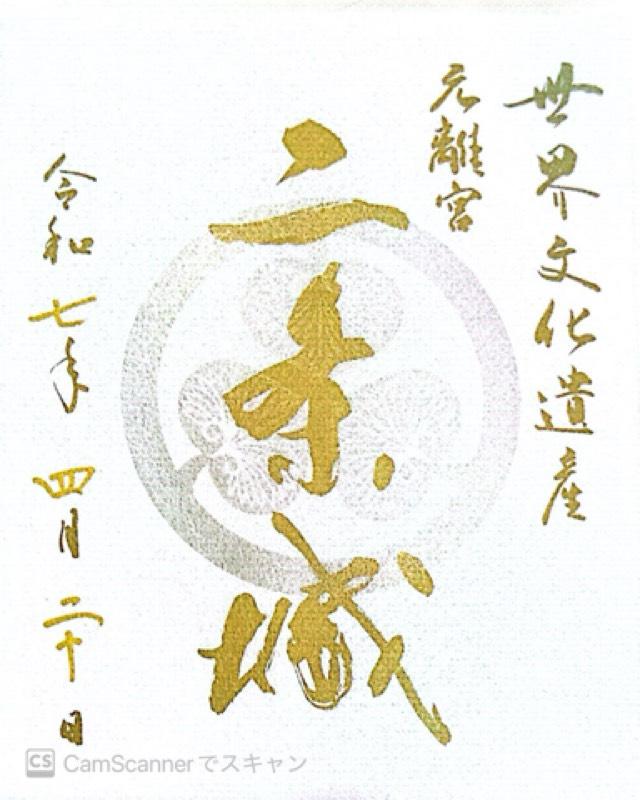 世界文化遺産
元離宮
二条城
令和七年四月二十日
CS CamScannerでスキャン